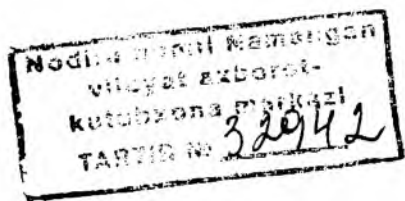 Nodira nomli Namangan
viloyat axborot-
kutubxona markazi
TARTIB № 32942